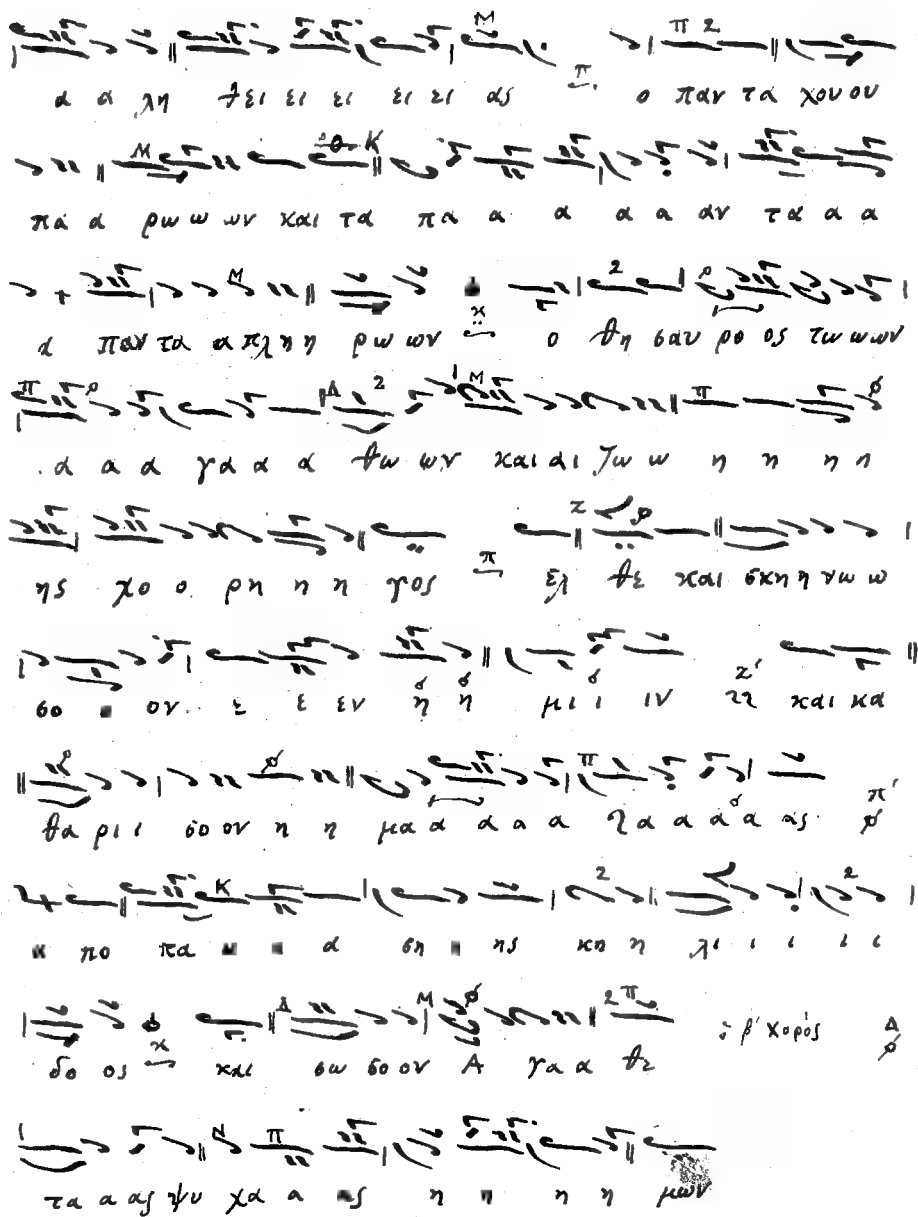 α α λη θει ει ει ει ει ας ο παν τα χου ου
πα α ρω ω ων και τα πα α α α α αν τα α α
α παν τα α πλη η ρω ων ο θη σαυ ρο ος τω ω ων
α α α γα α α θω ων και αι ζω ω η η η η
ης χο ο ρη η η γος ελ θε και σκη η νω ω
σο ον ε ε εν η η μι ι ι ιν και κα
θα ρι ι σο ον η η μα α α α α τα α α α ας
πο πα α ση ης κη η λι ι ι ι ι
δο ος και σω σο ον Α γα α θε β' χορός
τα α ας ψυ χα α ας η η η η μων